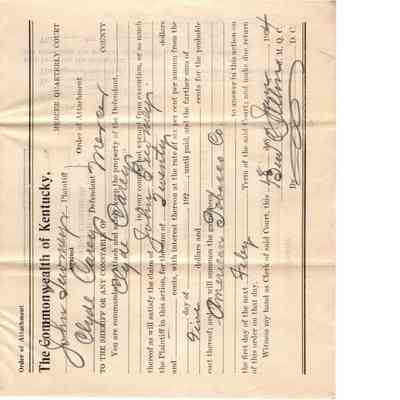 Order of Attachment
The Commonwealth of Kentucky,
MERCER QUARTERLY COURT
John Twomey Plaintiff
Against
Order of Attachment
Clyde Carey Defendant
TO THE SHERIFF OR ANY CONSTABLE OF Mercer COUNTY
You are commanded to attach and safely keep the property of the Defendant
Clyde Carey
in your county, not exempt from execution, or so much
thereof as will satisfy the claim of John Twomey
the Plaintiff in this action, for the sum of Twenty dollars
and cents, with interest thereon at the rate of six per cent per annum from the
day of 192 until paid, and the further sum of
Five dollars and cents for the probable
cost thereof; and will summon the garnishee
American Tobacco Co
to answer in this action on
the first day of the next Feby Term of the said Court; and make due return
of this order on that day.
Witness my hand as Clerk of said Court, this 18 day of 1924
M. Q. C.
By D. C.